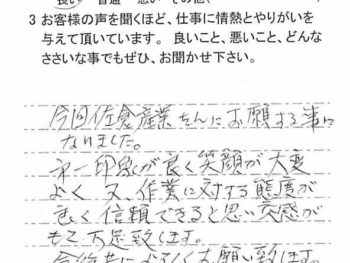 良い 普通 悪い その他(
3 お客様の声を聞くほど、仕事に情熱とやりがいを
与えて頂いています。 良いこと、悪いこと、どんな
ささいな事でもぜひ、お聞かせ下さい。
今回佐倉産業さんにお願する事に
なりました。
第一印象が良く笑顔が大変
よく 又、作業に対する態度が
良く信頼できると思い交感が
もて 万足致します。
今後共によろしくお願い致します。